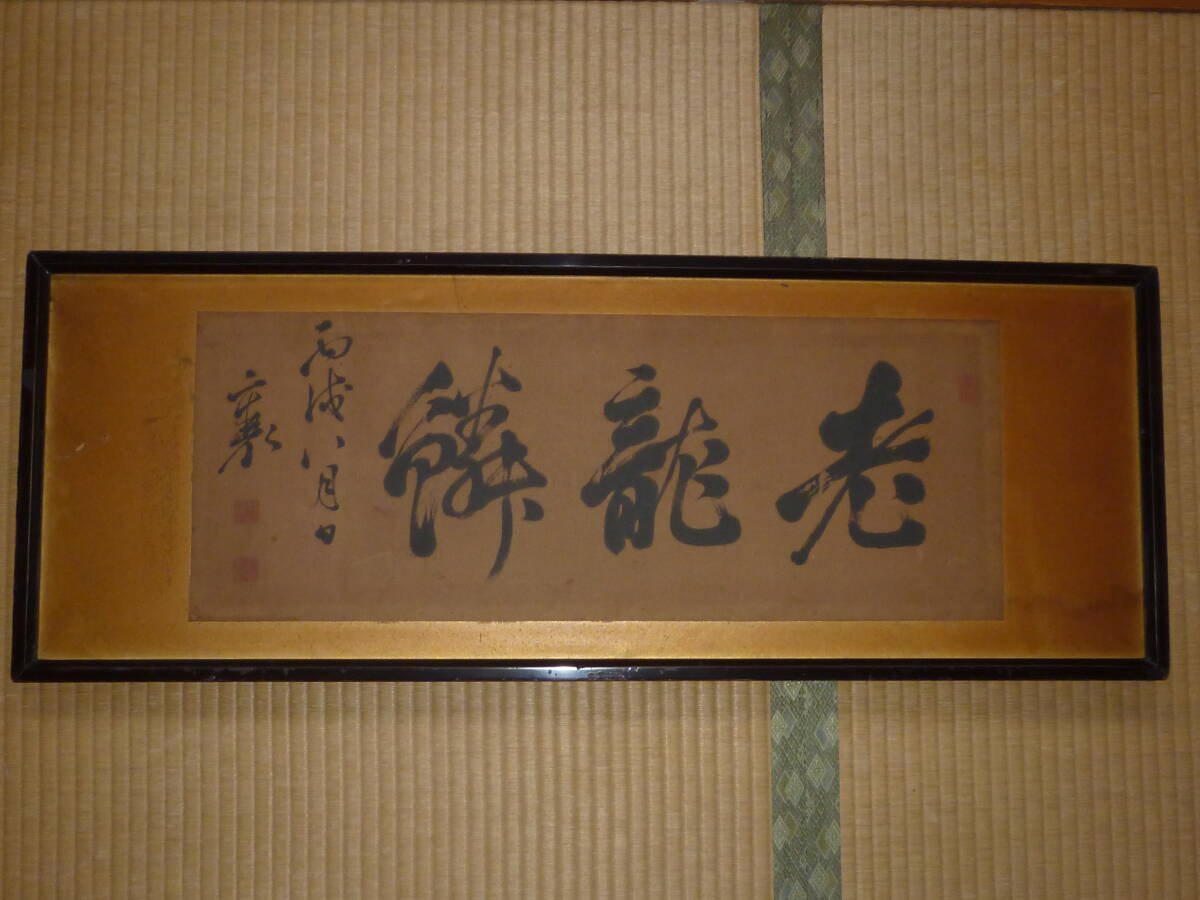 老龍鱗
丙戌八月日
襄